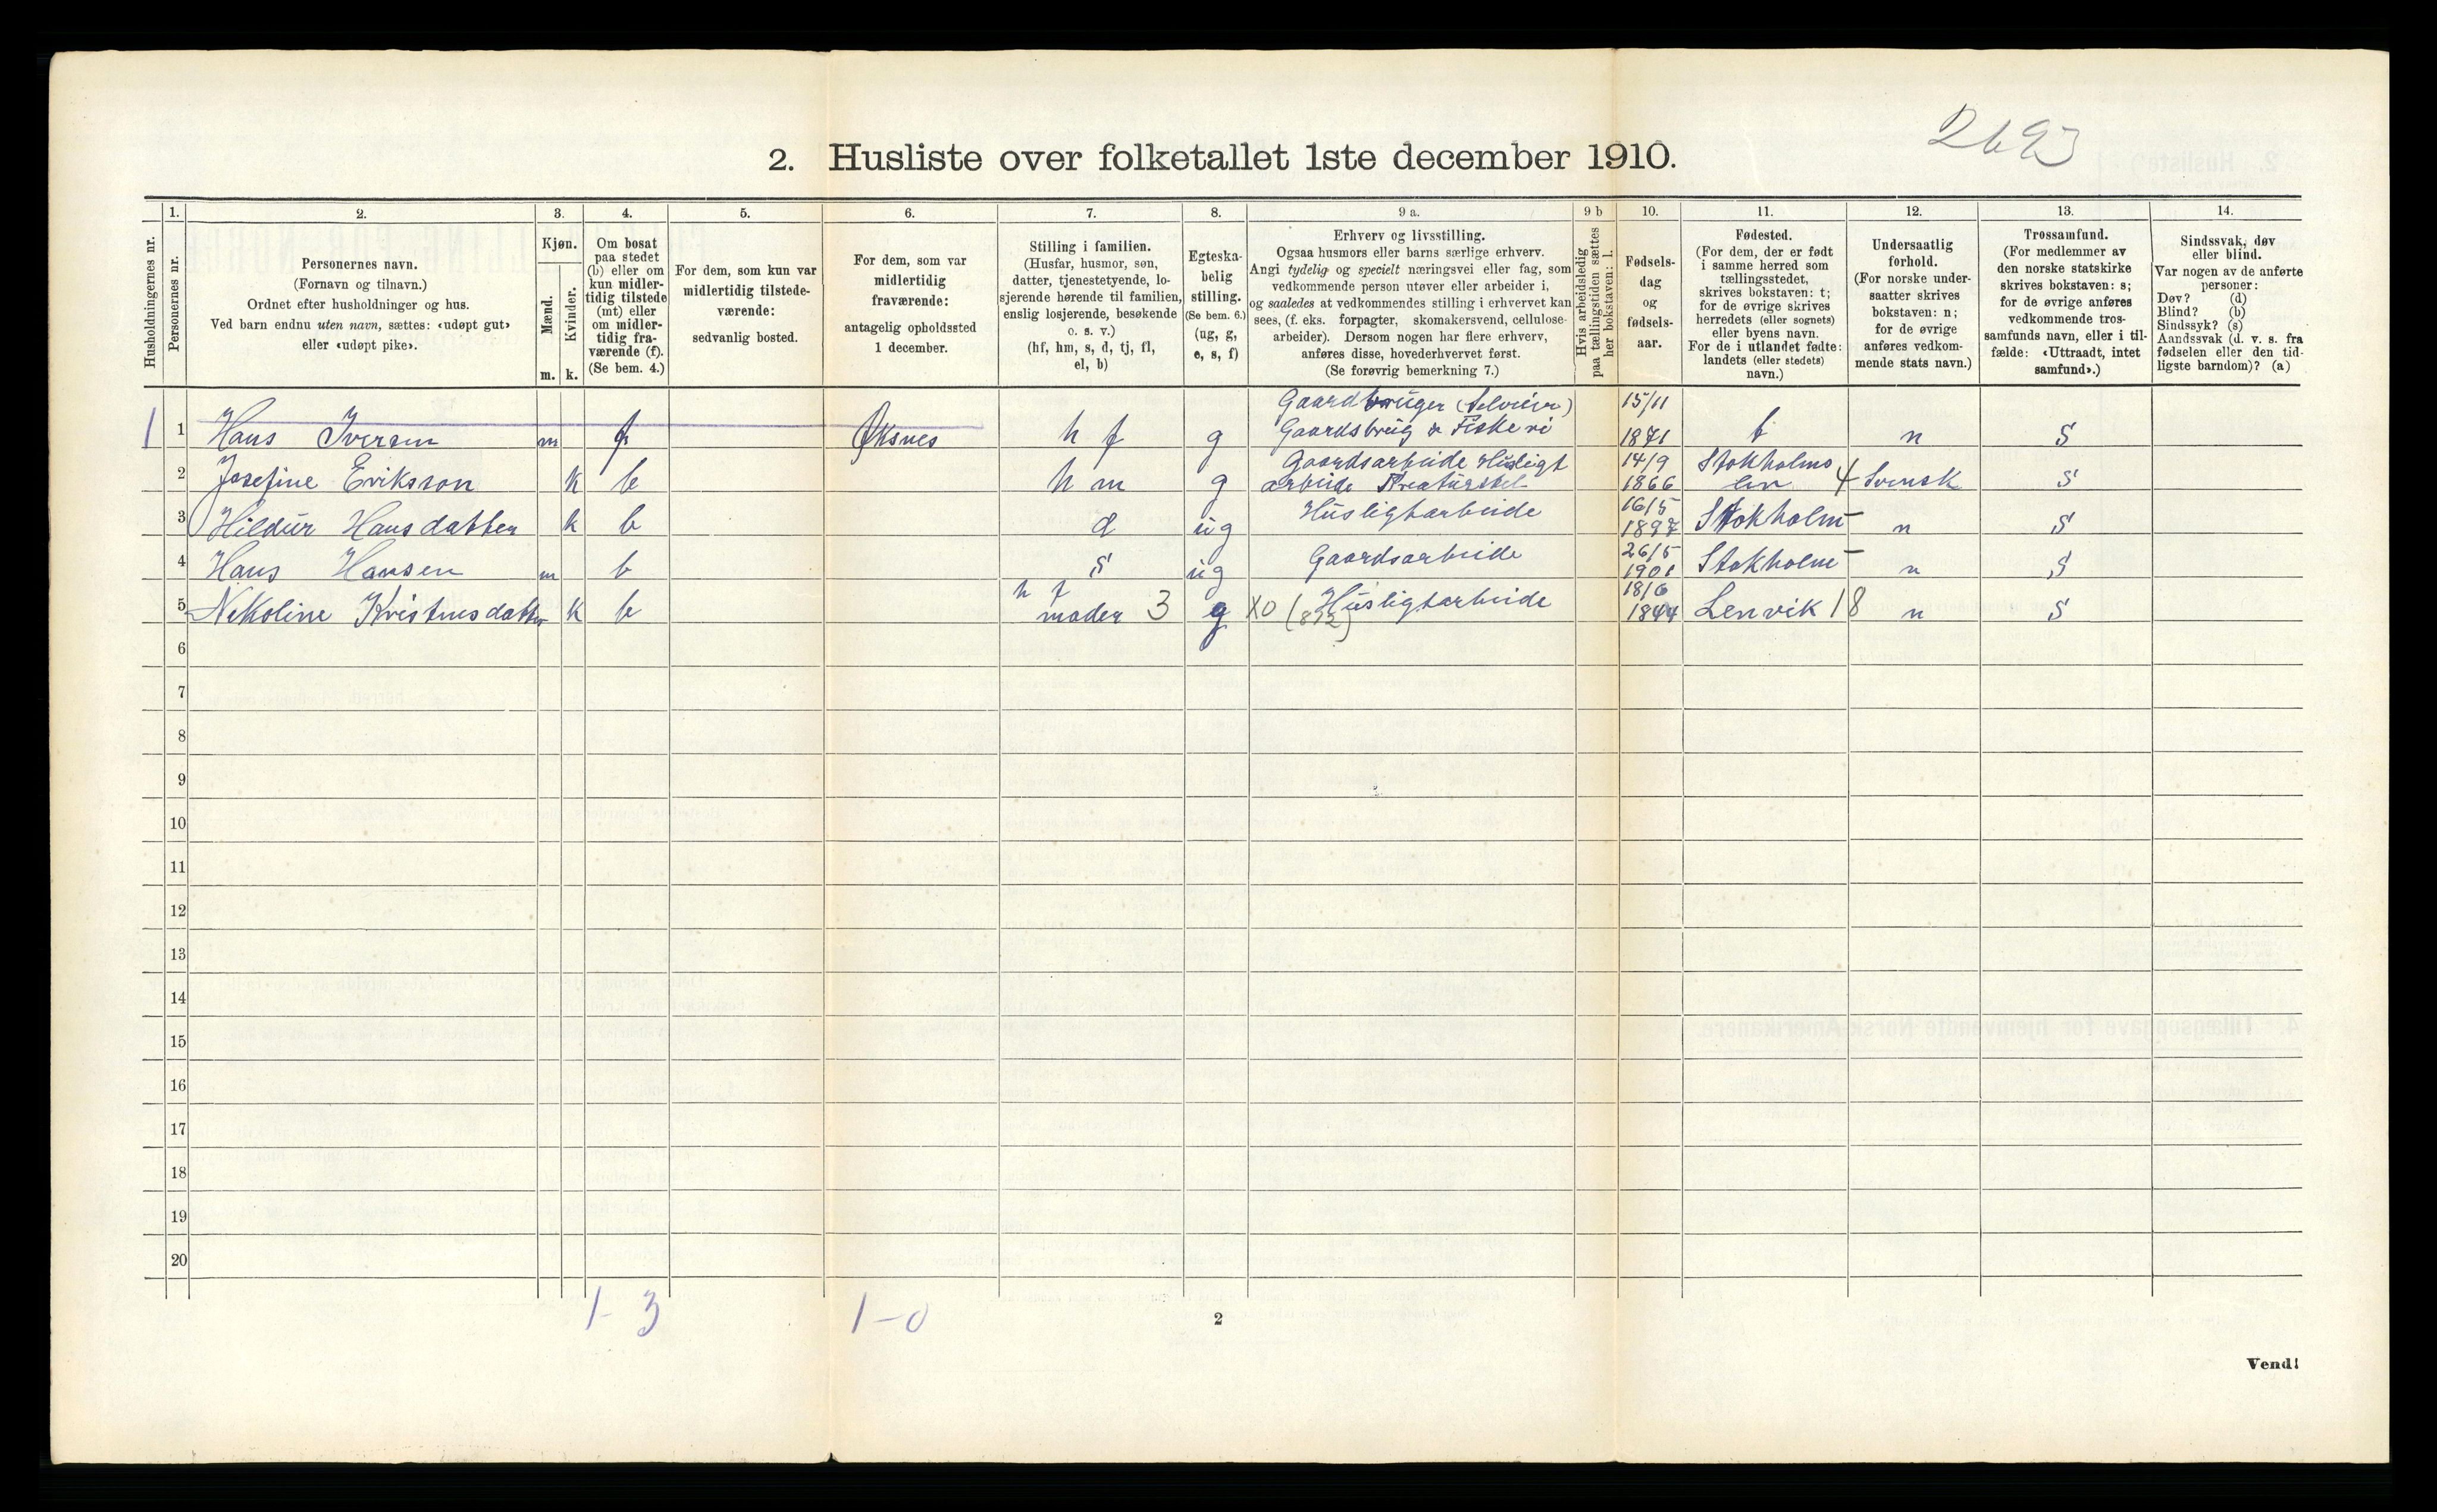 2693
2. Husliste over folketallet 1ste december 1910.
Husholdningernes nr.
1.
Personernes nr.
2.
Personernes navn.
(Fornavn og tilnavn.)
Ordnet efter husholdninger og hus.
Ved barn endnu uten navn, sættes: «udøpt gut»
eller «udøpt pike».
3.
Kjøn.
Mænd.
Kvinder.
m. k.
4.
Om bosat
paa stedet
(b) eller om
kun midler-
tidig tilstede
(mt) eller
om midler-
tidig fra-
værende (f).
(Se bem. 4.)
5.
For dem, som kun var
midlertidig tilstede-
værende:
sedvanlig bosted.
6.
For dem, som var
midlertidig
fraværende:
antagelig opholdssted
1 december.
7.
Stilling i familien.
(Husfar, husmor, søn,
datter, tjenestetyende, lo-
sjerende hørende til familien,
enslig losjerende, besøkende
o. s. v.)
(hf, hm, s, d, tj, fl,
el, b)
8.
Egteska-
belig
stilling.
(Se bem. 6.)
(ug, g,
e, s, f)
9 a.
Erhverv og livsstilling.
Ogsaa husmors eller barns særlige erhverv.
Angi tydelig og specielt næringsvei eller fag, som
vedkommende person utøver eller arbeider i,
og saaledes at vedkommendes stilling i erhvervet kan
sees, (f. eks. forpagter, skomakersvend, cellulose-
arbeider). Dersom nogen har flere erhverv,
anføres disse, hovederhvervet først.
(Se forøvrig bemerkning 7.)
9 b
Hvis arbeidsledig
paa tællingstiden sættes
her bokstaven: l.
10.
Fødsels-
dag
og
fødsels-
aar.
11.
Fødested.
(For dem, der er født
i samme herred som
tællingsstedet,
skrives bokstaven: t;
for de øvrige skrives
herredets (eller sognets)
eller byens navn.
For de i utlandet fødte:
landets (eller stedets)
navn.)
12.
Undersaatlig
forhold.
(For norske under-
saatter skrives
bokstaven: n;
for de øvrige
anføres vedkom-
mende stats navn.)
13.
Trossamfund.
(For medlemmer av
den norske statskirke
skrives bokstaven: s;
for de øvrige anføres
vedkommende tros-
samfunds navn, eller i til-
fælde: «Uttraadt, intet
samfund».)
14.
Sindssvak, døv
eller blind.
Var nogen av de anførte
personer:
Døv? (d)
Blind? (b)
Sindssyk? (s)
Aandssvak (d. v. s. fra
fødselen eller den tid-
ligste barndom)? (a)
Gaardbruger (Selveier) 15/11
1 1 Hans Iversen m f Øksnes h f g Gaardsbrug & Fiskeri 1871 t n S
Gaardsarbeide Husligt 14/9 Stokholms
2 Josefine Eriksson k b h m g arbeide Kreaturstel 1866 len 4 Svensk S
3 Hildur Hansdatter k b d ug Husligtarbeide 16/5 1897 Stokholm n S
4 Hans Hansen m b s ug Gaardsarbeide 26/5 1901 Stokholm n S
h f 18/6
5 Nikoline Kristensdatter k b moder 3 g X0 Husligtarbeide 1844 Lenvik 18 n S
6
7
8
9
10
11
12
13
14
15
16
17
18
19
20
1-3 1-0
2
Vend!